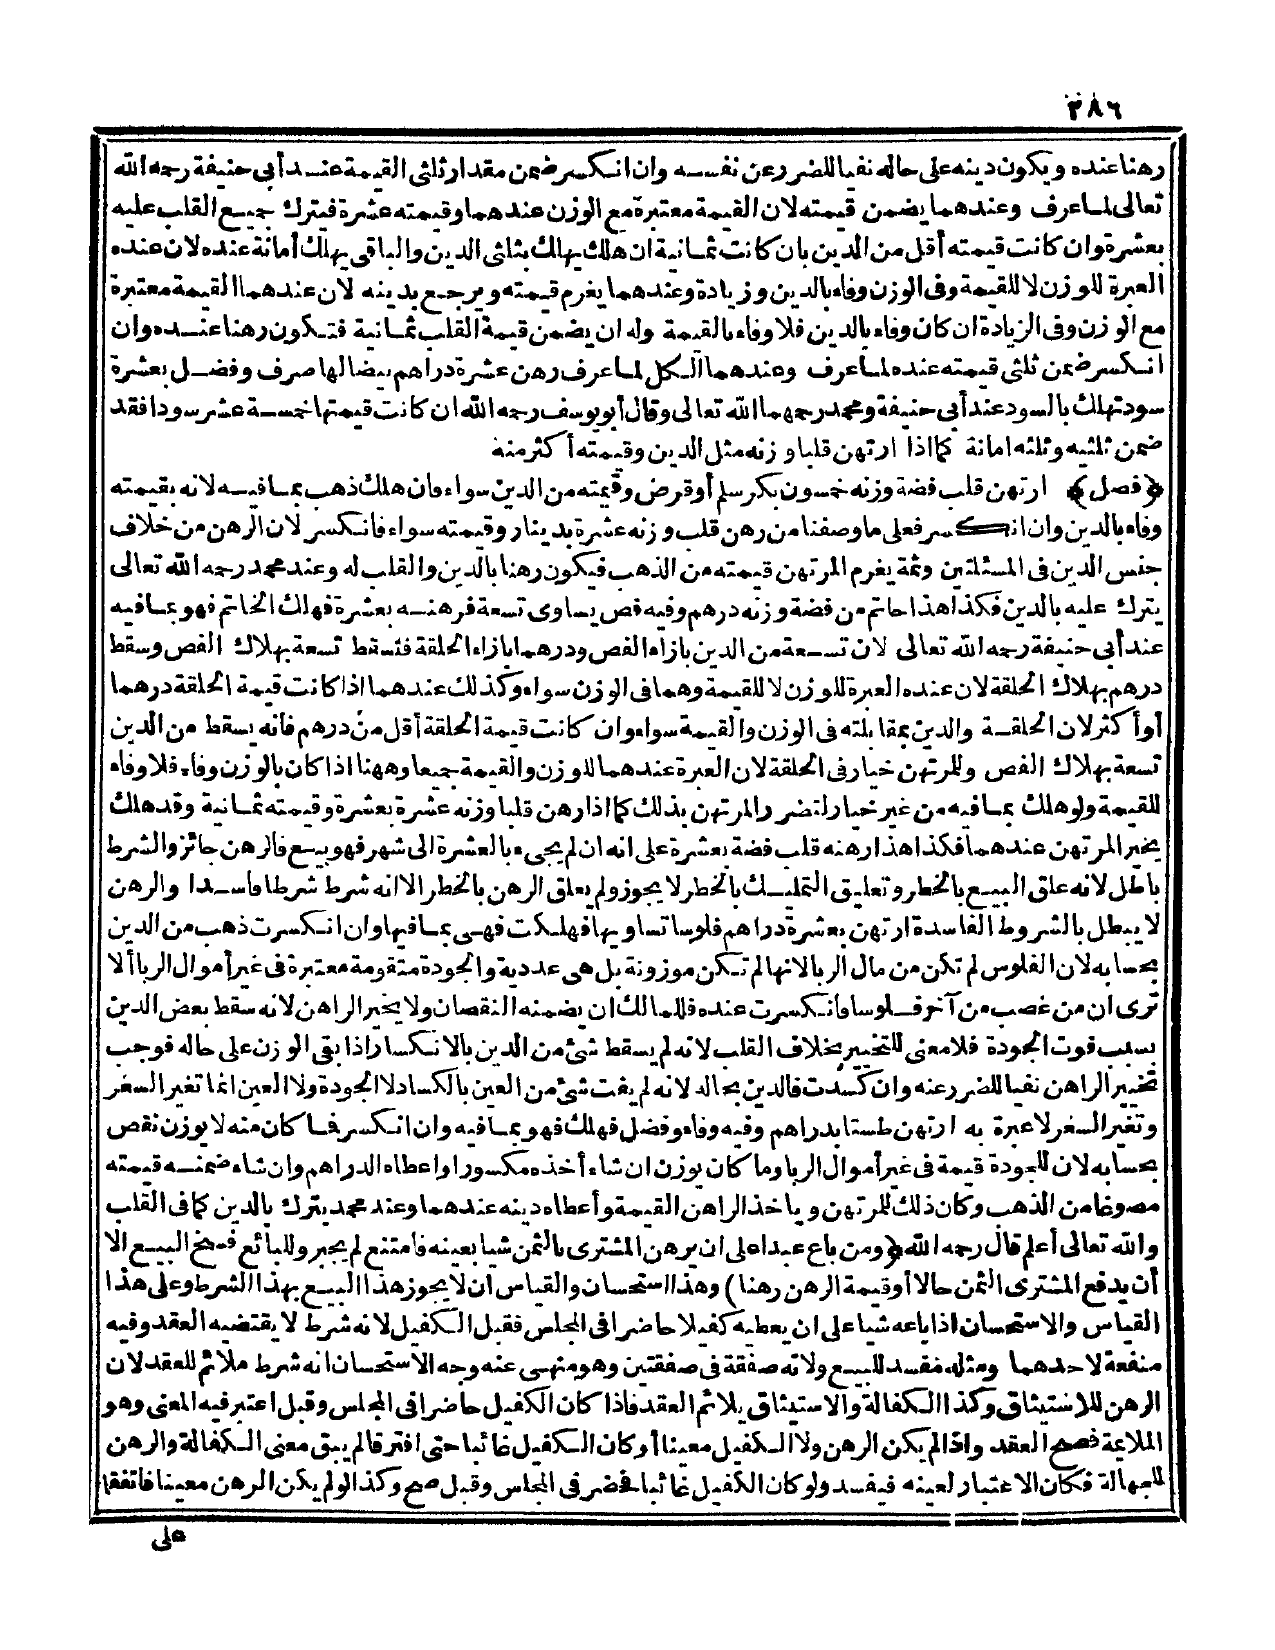 ٢٨٦
رهنا عنده ويكون دينه على حاله نفيا للضرر عن نفسه وان انكسر ضمن مقدار ثلثى القيمة عند أبى حنيفة رحمه الله
تعالى لما عرف وعندهما يضمن قيمته لان القيمة معتبرة مع الوزن عندهما وقيمته عشرة فيترك جميع القلب عليه
بعشرة وان كانت قيمته أقل من الدين بان كانت ثمانية ان هلك يهلك بثلثى الدين والباقى يهلك أمانة عنده لان عنده
العبرة للوزن لا للقيمة وفى الوزن وفاء بالدين وزيادة وعندهما يغرم قيمته ويرجع بدينه لان عندهما القيمة معتبرة
مع الوزن وفى الزيادة ان كان وفاء بالدين فلا وفاء بالقيمة وله ان يضمن قيمة القلب ثمانية فتكون رهنا عنده وان
انكسر ضمن ثلثى قيمته عنده لما عرف وعندهما الكل لما عرف رهن عشرة دراهم بيضا لها صرف وفضل بعشرة
سود تهلك بالسود عند أبى حنيفة ومحمد رحمهما الله تعالى وقال أبو يوسف رحمه الله ان كانت قيمتها خمسة عشر سودا فقد
ضمن ثلثيه وثلثه امانة كما اذا ارتهن قلبا وزنه مثل الدين وقيمته أكثر منه
﴿فصل﴾ ارتهن قلب فضة وزنه خمسون بكر سلم أو قرض وقيمته من الدين سواء فان هلك ذهب بما فيه لانه بقيمته
وفاء بالدين وان انكسر فعلى ما وصفنا من رهن قلب وزنه عشرة بدينار وقيمته سواء فانكسر لان الرهن من خلاف
جنس الدين فى المسئلتين وثمة يغرم المرتهن قيمته من الذهب فيكون رهنا بالدين والقلب له وعند محمد رحمه الله تعالى
يترك عليه بالدين فكذا هذا خاتم من فضة وزنه درهم وفيه فص يساوى تسعة فرهنه بعشرة فهلك الخاتم فهو بما فيه
عند أبى حنيفة رحمه الله تعالى لان تسعة من الدين بازاء الفص ودرهما بازاء الحلقة فتسقط تسعة بهلاك الفص وسقط
درهم بهلاك الحلقة لان عنده العبرة للوزن لا للقيمة وهما فى الوزن سواء وكذلك عندهما اذا كانت قيمة الحلقة درهما
أو أكثر لان الحلقة والدين بمقابلته فى الوزن والقيمة سواء وان كانت قيمة الحلقة أقل من درهم فانه يسقط من الدين
تسعة بهلاك الفص وللمرتهن خيار فى الحلقة لان العبرة عندهما للوزن والقيمة جميعا وههنا اذا كان بالوزن وفاء فلا وفاء
للقيمة ولو هلك بما فيه من غير خيار لتضرر المرتهن بذلك كما اذا رهن قلبا وزنه عشرة بعشرة وقيمته ثمانية وقد هلك
يخير المرتهن عندهما فكذا هذا رهنه قلب فضة بعشرة على انه ان لم يجىء بالعشرة الى شهر فهو بيع فالرهن جائز والشرط
باطل لانه علق البيع بالخطر وتعليق التمليك بالخطر لا يجوز ولم يعلق الرهن بالخطر الا انه شرط شرطا فاسدا والرهن
لا يبطل بالشروط الفاسدة ارتهن بعشرة دراهم فلوسا تساويها فهلكت فهى بما فيها وان انكسرت ذهب من الدين
بحسابه لان الفلوس لم تكن من مال الربا لانها لم تكن موزونة بل هى عددية والجودة متقومة معتبرة فى غير أموال الربا ألا
ترى ان من غصب من آخر فلوسا فانكسرت عنده فللمالك ان يضمنه النقصان ولا يخير الراهن لانه سقط بعض الدين
بسبب فوت الجودة فلا معنى للتخيير بخلاف القلب لانه لم يسقط شئ من الدين بالانكسار اذا بقى الوزن على حاله فوجب
تخيير الراهن نفيا للضرر عنه وان كسدت فالدين بحاله لانه لم يفت شئ من العين بالكساد لا الجودة ولا العين انما تغير السعر
وتغير السعر لا عبرة به ارتهن طستا بدراهم وفيه وفاء وفضل فهلك فهو بما فيه وان انكسر فما كان منه لا يوزن نقص
بحسابه لان للجودة قيمة فى غير أموال الربا وما كان يوزن ان شاء أخذه مكسورا واعطاه الدراهم وان شاء ضمنه قيمته
مصوغا من الذهب وكان ذلك للمرتهن وياخذ الراهن القيمة وأعطاه دينه عندهما وعند محمد يترك بالدين كما فى القلب
والله تعالى أعلم قال رحمه الله ﴿ومن باع عبدا على ان يرهن المشترى بالثمن شيا بعينه فامتنع لم يجبر وللبائع فسخ البيع الا
أن يدفع المشترى الثمن حالا أو قيمة الرهن رهنا﴾ وهذا استحسان والقياس ان لا يجوز هذا البيع بهذا الشرط وعلى هذا
القياس والاستحسان اذا باعه شيا على ان يعطيه كفيلا حاضرا فى المجلس فقبل الكفيل لانه شرط لا يقتضيه العقد وفيه
منفعة لاحدهما ومثله مفسد للبيع ولانه صفقة فى صفقتين وهو منهى عنه وجه الاستحسان انه شرط ملائم للعقد لان
الرهن للاستيثاق وكذا الكفالة والاستيثاق يلائم العقد فاذا كان الكفيل حاضرا فى المجلس وقبل اعتبر فيه المعنى وهو
الملاءمة فصح العقد واذا لم يكن الرهن ولا الكفيل معينا أو كان الكفيل غائبا حتى افترقا لم يبق معنى الكفالة والرهن
للجهالة فكان الاعتبار لعينه فيفسد ولو كان الكفيل غائبا فحضر فى المجلس وقبل صح وكذا لو لم يكن الرهن معينا فاتفقا
على